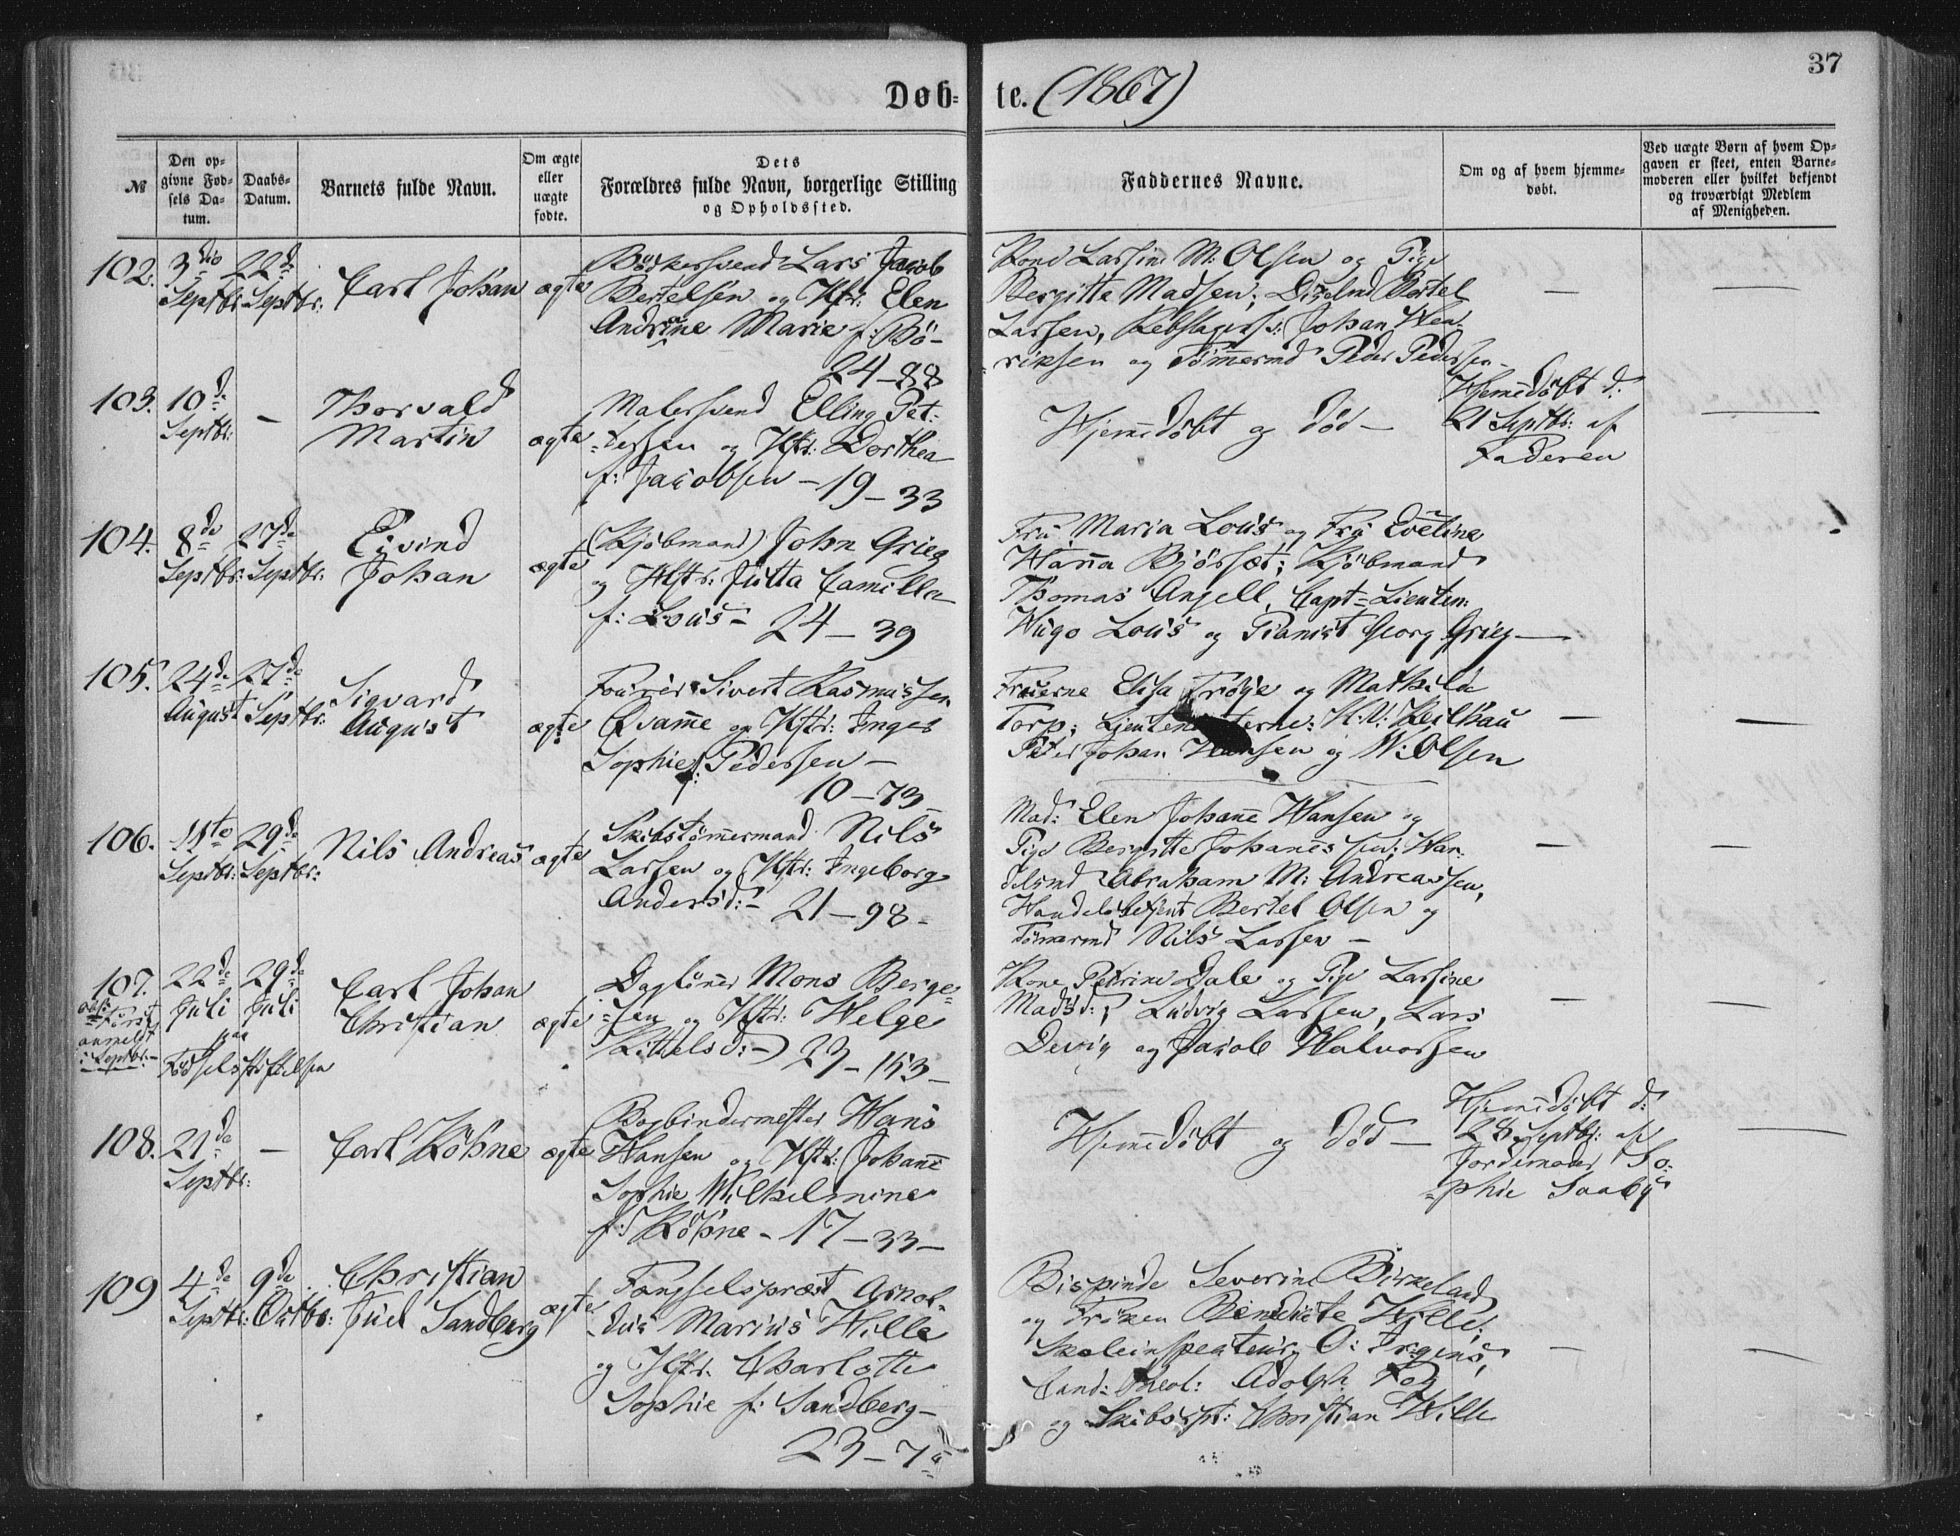 37
Døb- te. (1867)
№
Den op-
givne Fød-
sels Da-
tum.
Daabs-
Datum.
Barnets fulde Navn.
Om ægte
eller
uægte
fødte.
Dets
Forældres fulde Navn, borgerlige Stilling
og Opholdssted.
Faddernes Navne.
Om og af hvem hjemme-
døbt.
Ved uægte Børn af hvem Op-
gaven er skeet, enten Barne-
moderen eller hvilket bekjendt
og troværdigt Medlem
af Menigheden.
102.
3die
Septbr:
22de
Septbr:
Carl Johan
ægte
Bödkersvend Lars Jacob
Bertelsen og Hstr: Elen
Andrine Marie f: Bö-
24-88
Kone Larsine M: Olsen og Pige
Bergitte Madsen; Bertel
Larsen, Rebslagers: Johan Hen-
riksen og Tömermd Peder Pedersen-
103.
10de
Septbr:
-
Thorvald
Martin
ægte
Malersvend Elling Pet-
-tersen og Hstr: Dorthea
f: Jacobsen - 19-33
Hjemmedöbt og död -
Hjemmedöbt d:
21 Septbr: af
Faderen
104.
8de
Septbr:
27de
Septbr:
Eivind
Johan
ægte
(Kjöbmand) John Grieg
og Hstr: Jutta Camilla
f: Lous - 24-39
Fru Maria Lous og Fru Eveline
Hanna Björset; Kjöbmand
Thomas Angell, Capt-Lieuten:
Hugo Lous og Pianist Georg Grieg -
105.
24de
August
27de
Septbr:
Sigvard
August
ægte
Fourér Sivert Rasmussen
Qvamme og Hstr: Inger
Sophie f: Pedersen -
10-73
Fruerne Elisa Tröye og Mathilde
Torp; H:V: Keilhau
Peter Johan Hansen og W: Olsen
106.
11te
Septbr:
29de
Septbr:
Nils Andreas
ægte
Skibstömmermand Nils
Larsen og Hstr: Ingeborg
Andersd: - 21-98-
Mad: Elen Johanne Hansen og
Pige Bergitte Johannessen; Han-
delsmd Abraham M: Andreassen,
Handelsbetjent Bertel Olsen og
Tömermd Nils Larsen -
107.
först
anmeldt
i Septbr.-
22de
Juli
29de
Juli
paa
Födselsstiftelsen
Carl Johan
Christian
ægte
Daglönner Mons Berge-
-sen og Hstr: Helge
Kittelsd: - 23-153-
Kone Petrine Dale og Pige Larsine
Madsd:; Ludvig Larsen, Lars
Devig og Jacob Halvorsen
108.
21de
Septbr:
-
Carl Köhne
ægte
Bogbindermester Hans
Hansen og Hstr: Johanne
Sophie Wilhelmine
f: Köhne - 17-33-
Hjemmedöbt og död -
Hjemmedöbt d:
28 Septbr: af
Jordemoder So-
-phie Saaby
109
4de
Septbr:
9de
Octbr:
Christian
Juel Sandberg
ægte
Fængselspræst Arnol-
-dus Marius Hille
og Hstr. Charlotte
Sophie f: Sandberg-
23-7a
Bispinde Severine Birkeland
og Fröken Benedicte Hille;
Skoleinspecteur O: Irgens,
Cand: theol: Adolph
og Skibscpt: Christian Hille